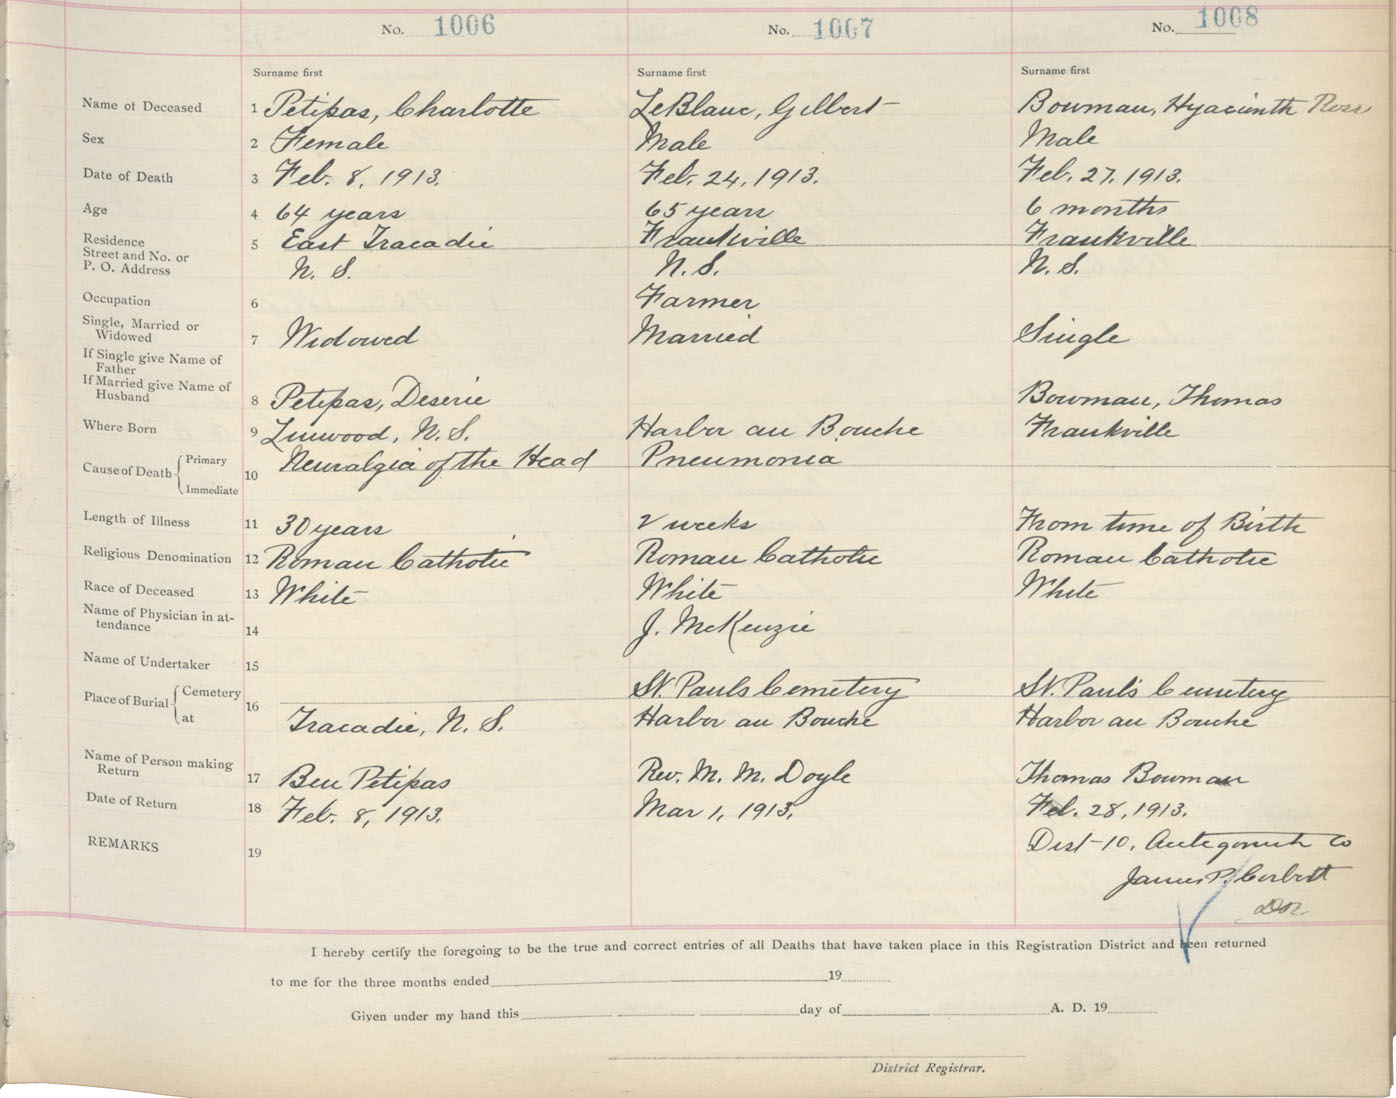 No. 1006 No. 1007 No. 1008
Surname first Surname first Surname first
Name of Deceased 1 Petipas, Charlotte LeBlanc, Gilbert Bowman, Hyacinth Ross
Sex 2 Female Male Male
Date of Death 3 Feb. 8, 1913. Feb. 24, 1913. Feb. 27, 1913.
Age 4 64 years 65 years 6 months
Residence
Street and No. or 5 East Tracadie Frankville Frankville
P. O. Address N. S. N. S. N. S.
Occupation 6 Farmer
Single, Married or
Widowed 7 Widowed Married Single
If Single give Name of
Father
If Married give Name of
Husband 8 Petipas, Deserie Bowman, Thomas
Where Born 9 Linwood, N. S. Harbor au Bouche Frankville
Cause of Death Primary 10 Neuralgia of the Head Pneumonia
Immediate
Length of Illness 11 30 years 2 weeks From time of Birth
Religious Denomination 12 Roman Catholic Roman Catholic Roman Catholic
Race of Deceased 13 White White White
Name of Physician in at-
tendance 14 J. McKenzie
Name of Undertaker 15
Place of Burial Cemetery 16 St. Pauls Cemetery St. Paul's Cemetery
at Tracadie, N. S. Harbor au Bouche Harbor au Bouche
Name of Person making
Return 17 Ben Petipas Rev. M. M. Doyle Thomas Bowman
Date of Return 18 Feb. 8, 1913. Mar 1, 1913. Feb. 28, 1913.
REMARKS 19 Dist-10. Antigonish Co
James P. Corbett
DR
I hereby certify the foregoing to be the true and correct entries of all Deaths that have taken place in this Registration District and been returned
to me for the three months ended 19
Given under my hand this day of A. D. 19
District Registrar.